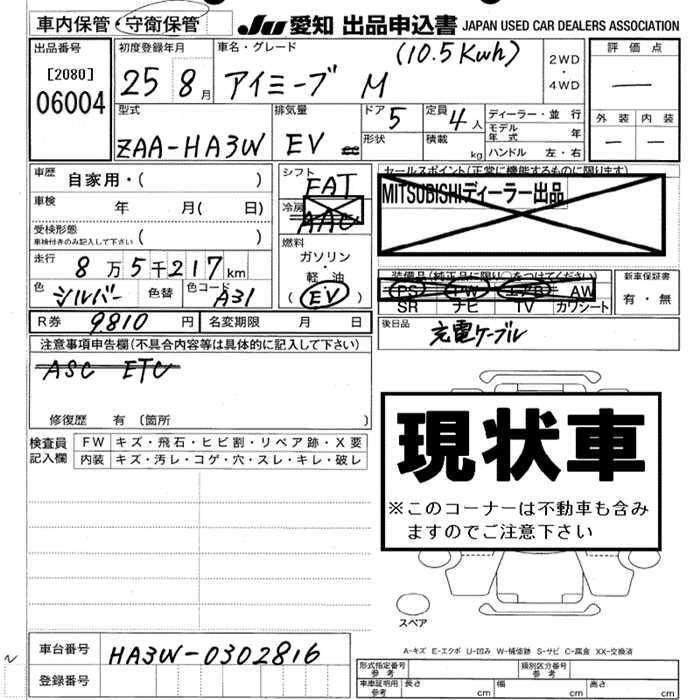 車内保管・守衛保管
JU 愛知 出品申込書 JAPAN USED CAR DEALERS ASSOCIATION
出品番号
[2080]
06004
初度登録年月
25 8月
車名・グレード
アイミーブ M (10.5Kwh)
2WD
・
4WD
評価点
—
外装 内装
— —
型式
ZAA-HA3W
排気量
EV cc
ドア 5
形状
定員 4人
積載 kg
ディーラー・並行
モデル年式 年
ハンドル 左・右
車歴 自家用・( )
車検 年 月( 日)
受検形態
車検付きのみ記入して下さい ( )
走行 8万5千217km
色 シルバー 色替 色コード A31
R券 9810円 名変期限 月 日
シフト
FAT
冷房
AAC
燃料
ガソリン・
軽・油
(EV)
セールスポイント(正常に機能するものに限ります)
MITSUBISHIディーラー出品
装備品(純正品に限り○をつけてください)
PS PW エアB AW
SR ナビ TV カワシート
新車保証書
有・無
後日品
充電ケーブル
注意事項申告欄(不具合内容等は具体的に記入して下さい)
ASC ETC
修復歴 有 〔箇所 〕
検査員記入欄
FW キズ・飛石・ヒビ割・リペア跡・X要
内装 キズ・汚レ・コゲ・穴・スレ・キレ・破レ
現状車
※このコーナーは不動車も含み
ますのでご注意下さい
スペア
A-キズ E-エクボ U-凹み W-補修跡 S-サビ C-腐食 XX-交換済
車台番号 HA3W-0302816
登録番号
型式指定番号
参考
類別区分番号
参考
車庫証明用
参考
長さ cm 幅 cm 高さ cm